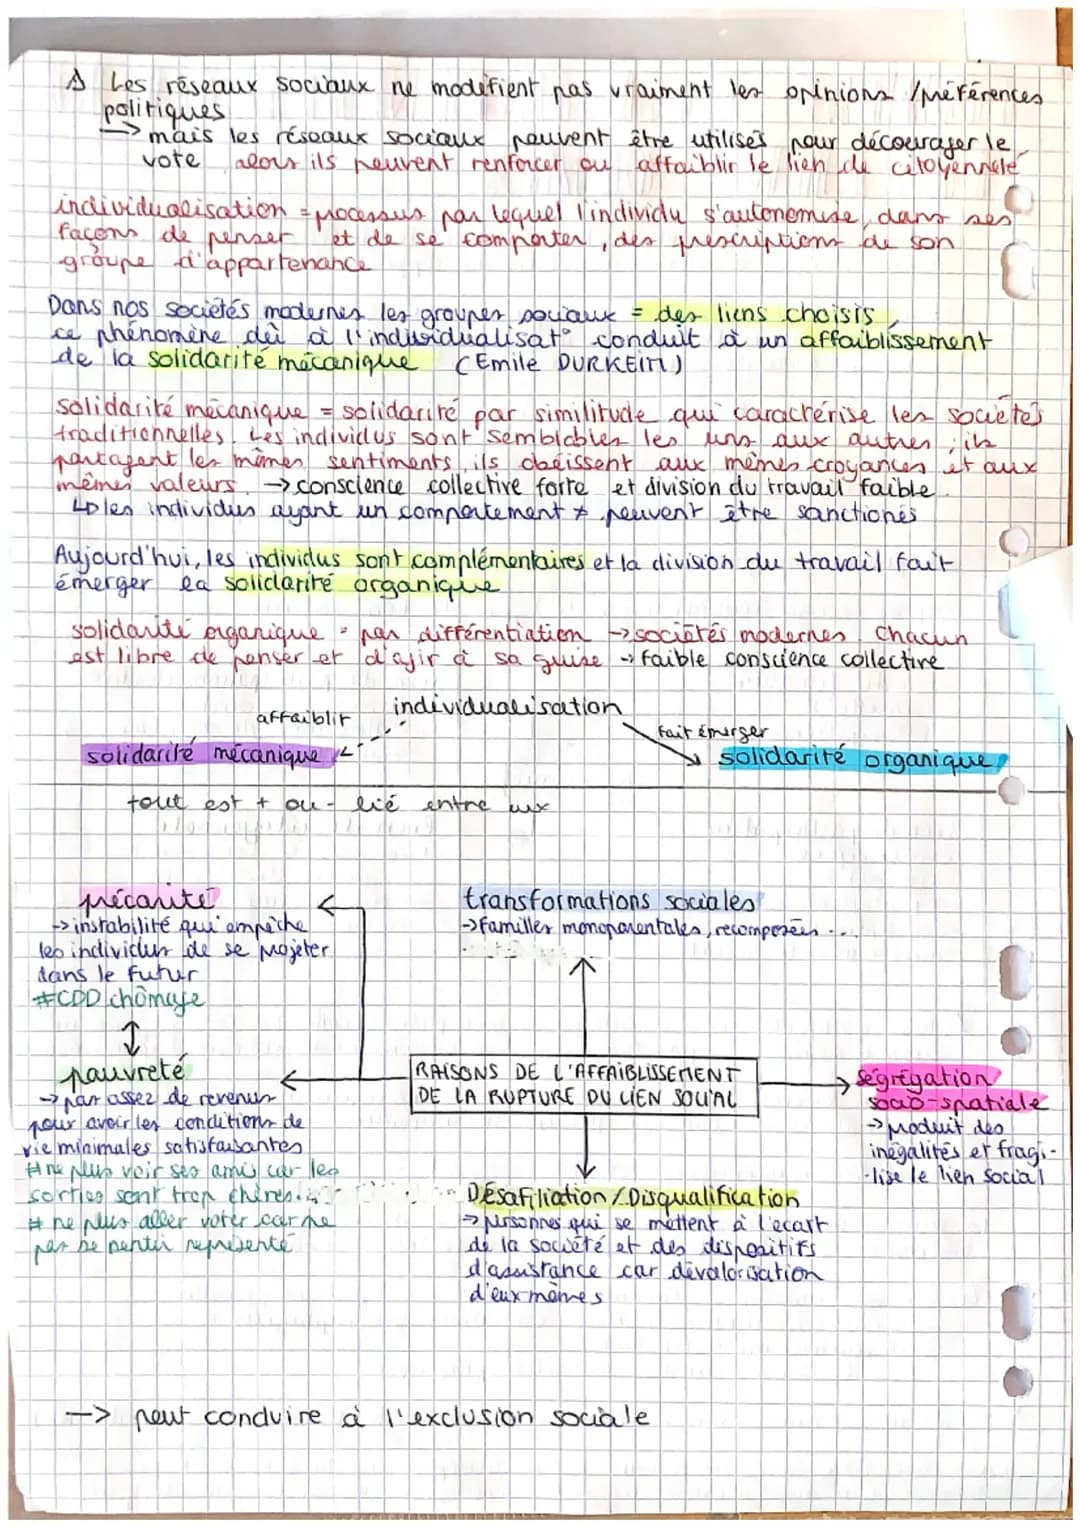 ⚠ Les réseaux sociaux ne modifient pas vraiment les opinions / préférences
politiques
→ mais les réseaux sociaux peuvent être utilisés pour décourager le
vote alors ils peuvent renforcer ou affaiblir le lien de citoyenneté
individualisation = processus par lequel l'individu s'autonomise, dans ses
façons de penser et de se comporter, des prescriptions de son
groupe d'appartenance
Dans nos sociétés modernes les groupes sociaux = des liens choisis,
ce phénomène dû à l'individualisat° conduit à un affaiblissement
de la solidarité mécanique (Emile DURKEIM)
solidarité mécanique = solidarité par similitude qui caractérise les sociétés
traditionnelles. Les individus sont semblables les uns aux autres ; ils
partagent les mêmes sentiments, ils obéissent aux mêmes croyances et aux
mêmes valeurs. → conscience collective forte et division du travail faible.
↳ les individus ayant un comportement ≠ peuvent être sanctionés
Aujourd'hui, les individus sont complémentaires et la division du travail fait
émerger la solidarité organique
solidarité organique = par différentiation → sociétés modernes. Chacun
est libre de penser et d'agir à sa guise → faible conscience collective
individualisation
affaiblir
fait émerger
solidarité mécanique
solidarité organique
tout est + ou - lié entre eux
précarité
→ instabilité qui empêche
les individus de se projeter
dans le futur
#CDD chômage
↕
pauvreté
→ pas assez de revenus
pour avoir les conditions de
vie minimales satisfaisantes
# ne plus voir ses amis car les
sorties sont trop chères...
# ne plus aller voter car ne
pas se sentir représenté
transformations sociales
→ familles monoparentales, recomposées ...
RAISONS DE L'AFFAIBLISSEMENT
DE LA RUPTURE DU LIEN SOCIAL
ségrégation
socio-spatiale
→ produit des
inégalités et fragi-
-lise le lien social
Désafiliation / Disqualification
→ personnes qui se mettent à l'écart
de la société et des dispositifs
d'assistance car dévalorisation
d'eux mêmes
→ peut conduire à l'exclusion sociale